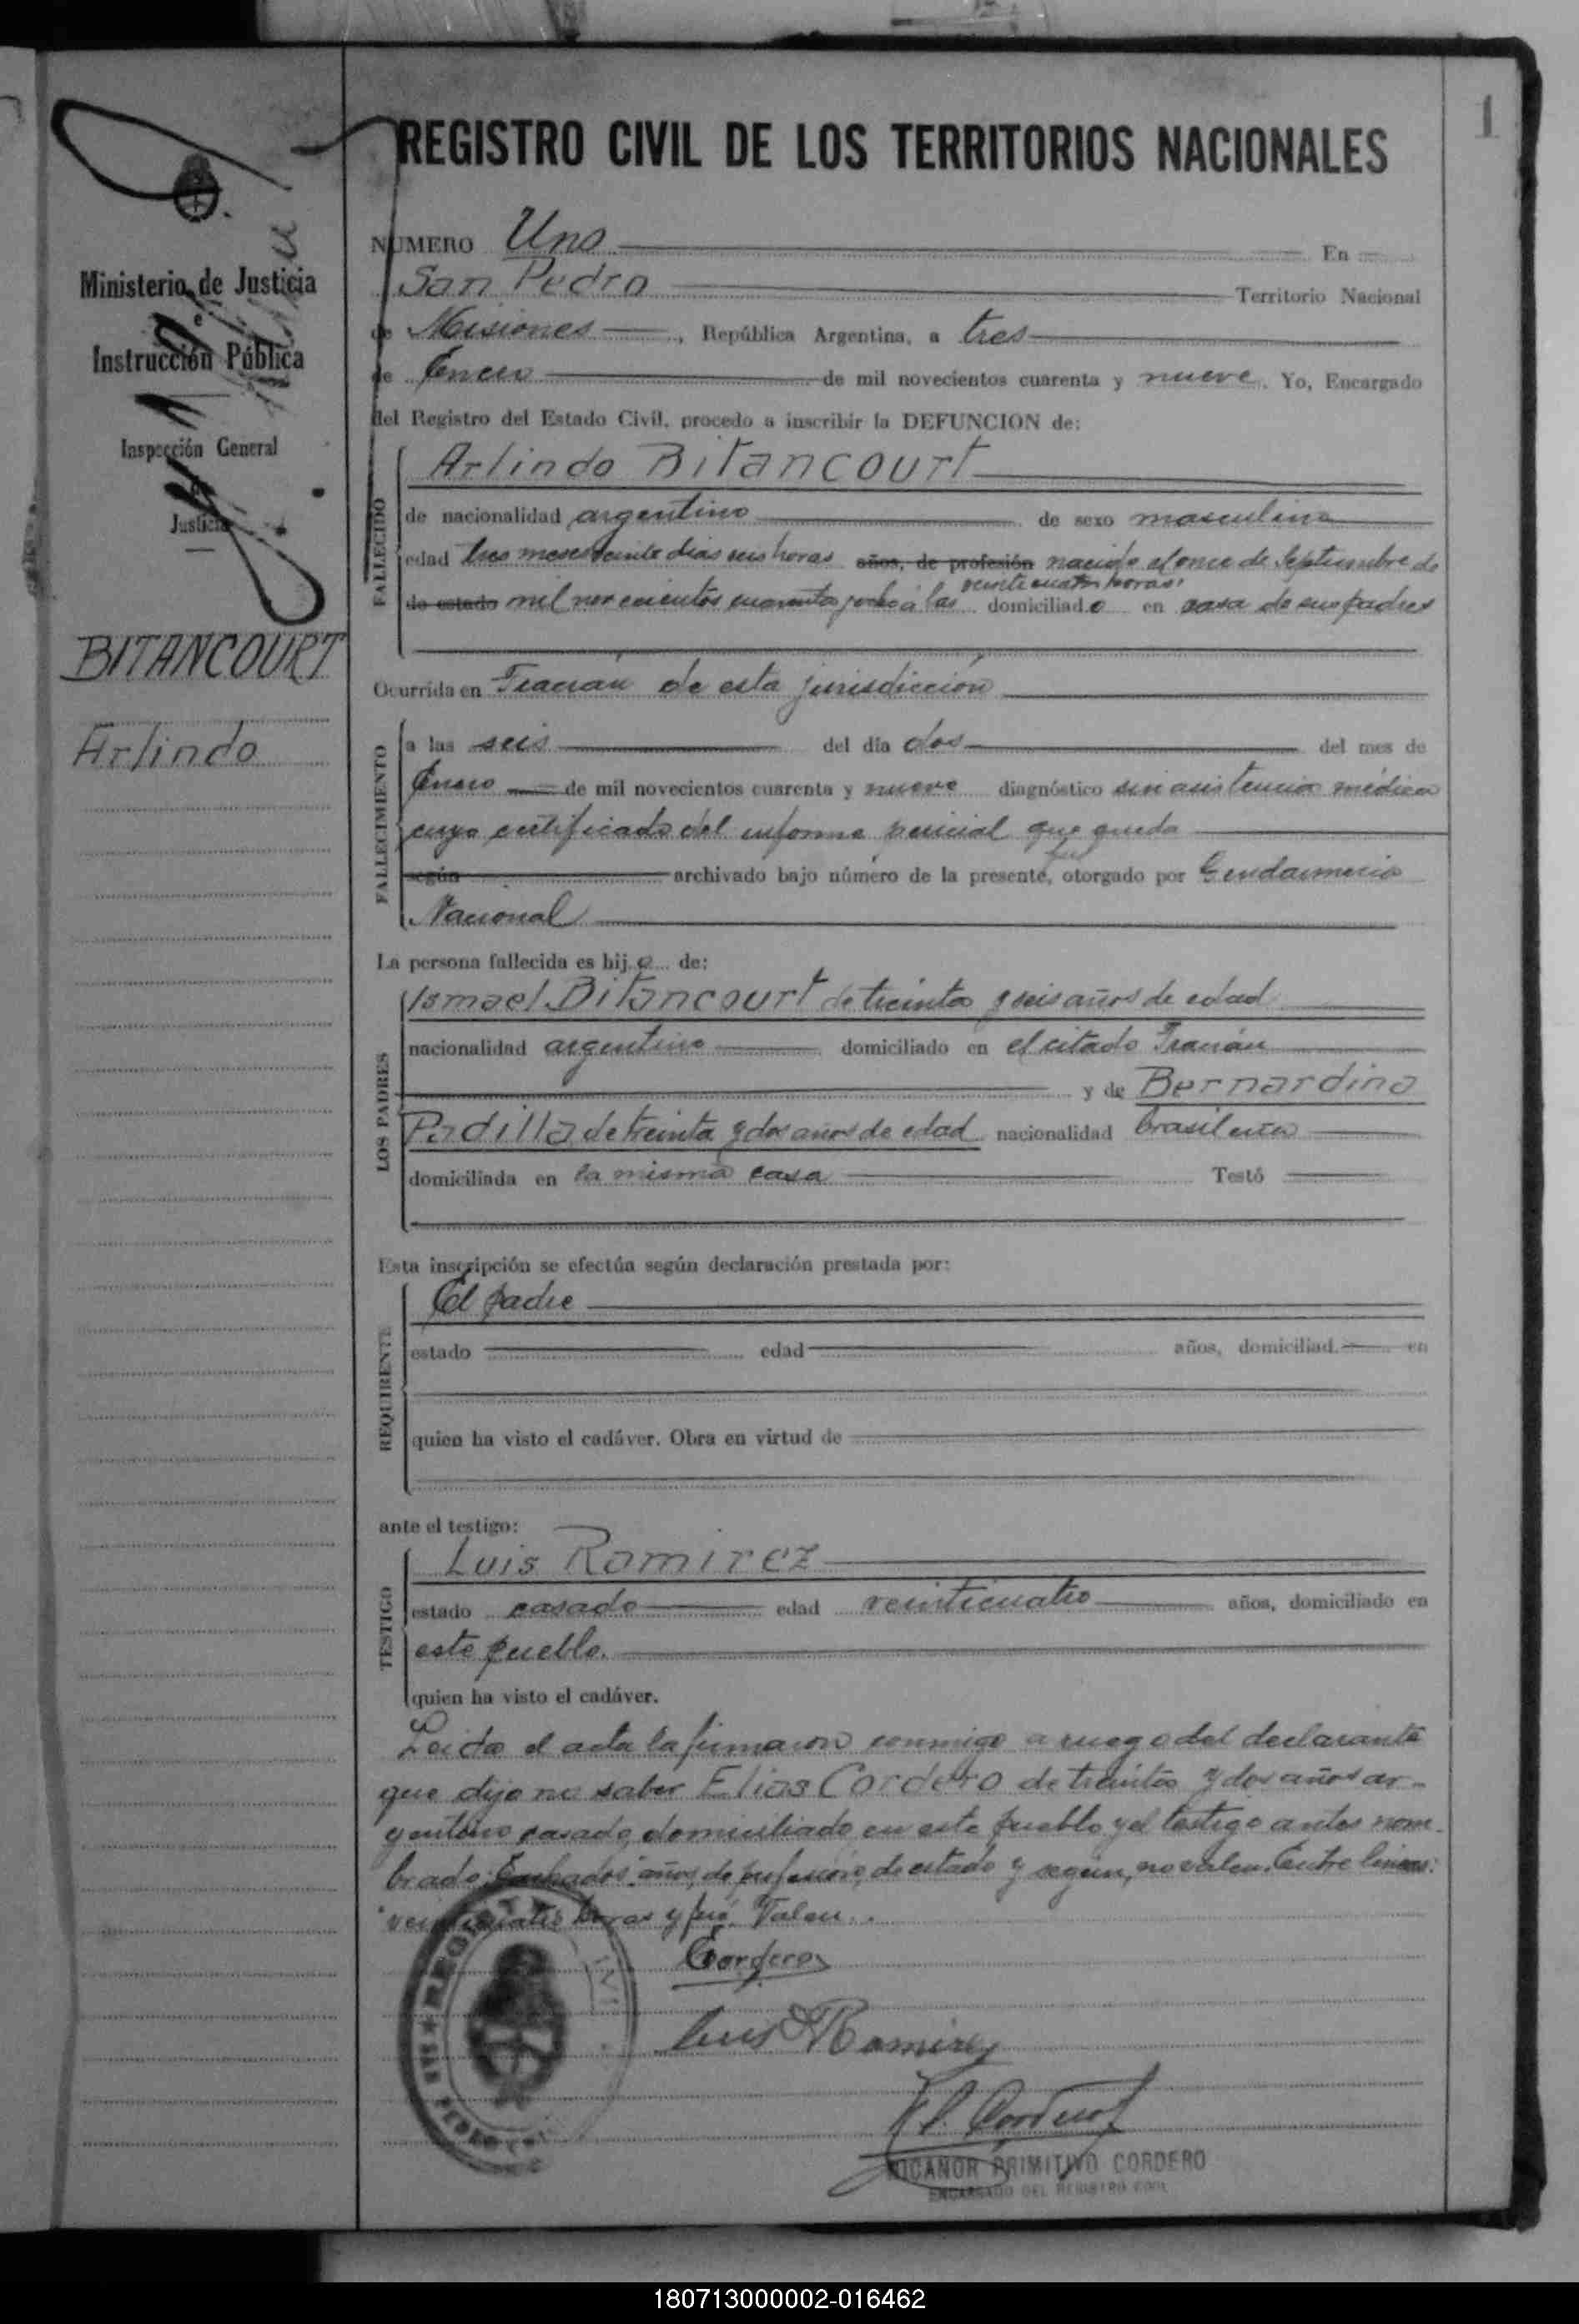 1
REGISTRO CIVIL DE LOS TERRITORIOS NACIONALES
Ministerio de Justicia
e
Instrucción Pública
Inspección General
de
Justicia
BITANCOURT
Arlindo
NUMERO Uno En
San Pedro Territorio Nacional
de Misiones, República Argentina, a tres
de Enero de mil novecientos cuarenta y nueve. Yo, Encargado
del Registro del Estado Civil, procedo a inscribir la DEFUNCION de:
FALLECIDO
Arlindo Bitancourt
de nacionalidad argentino de sexo masculino
edad tres meses veinte dias seis horas años, de profesión nacido el once de Septiembre de
veinticuatro horas
de estado mil novecientos cuarenta y ocho a las domiciliado en casa de sus padres
Ocurrida en Fracrán de esta jurisdicción
FALLECIMIENTO
a las seis del día dos del mes de
Enero de mil novecientos cuarenta y nueve diagnóstico sin asistencia médica
cuyo certificado del informe pericial que queda
fué
según archivado bajo número de la presente, otorgado por Gendarmeria
Nacional
La persona fallecida es hijo de:
LOS PADRES
Ismael Bitancourt de treinta y seis años de edad
nacionalidad argentino domiciliado en el citado Fracrán
y de Bernardina
Padilla de treinta y dos años de edad nacionalidad brasileña
domiciliada en la misma casa Testó
Esta inscripción se efectúa según declaración prestada por:
REQUIRENTE
El padre
estado edad años, domiciliad en
quien ha visto el cadáver. Obra en virtud de
ante el testigo:
TESTIGO
Luis Ramirez
estado casado edad veinticuatro años, domiciliado en
este pueblo.
quien ha visto el cadáver.
Leida el acta la firmaron conmigo a ruego del declarante
que dijo no saber Elias Cordero de treinta y dos años ar-
gentino casado, domiciliado en este pueblo y el testigo antes nom-
brado. Tachados: años, de profesión, de estado y según, no valen. Entre lineas:
"veinticuatro horas y fué" Valen.
Cordero
Luis Ramirez
N. P. Cordero
REGISTRO
SAN PEDRO
NICANOR PRIMITIVO CORDERO
ENCARGADO DEL REGISTRO CIVIL
180713000002-016462